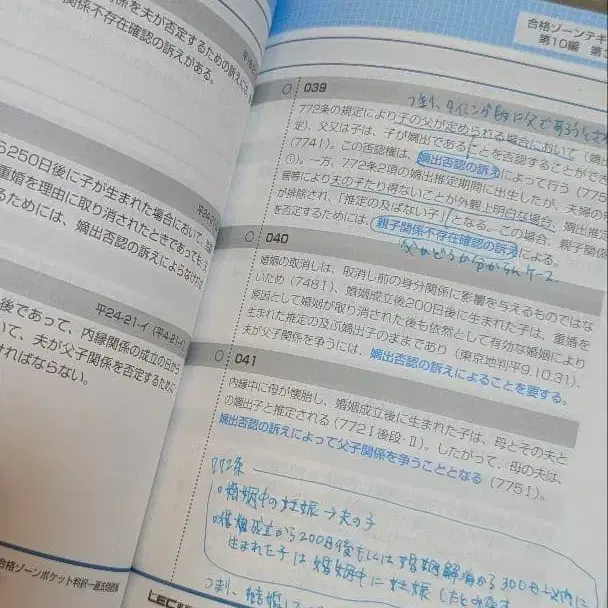 係を夫が否定するための訴えには、
関係不存在確認の訴えがある。
250日後に子が生まれた場合において、
重婚を理由に取り消されたときであっても、夫
るためには、嫡出否認の訴えによらなければ
平24-21-イ（平4-21-イ）
後であって、内縁関係の成立の日から
いて、夫が父子関係を否定するために
ければならない。
合格ゾーンポケット判択一過去問題集
合格ゾーンテキ
第10編 第
039
772条の規定により子の父が定められる場合において（嫡
定）、父又は子は、子が嫡出であることを否認することができ
（774Ⅰ）。この否認権は、嫡出否認の訴えによって行う（775
①）。一方、772条2項の嫡出推定期間に出生したが、夫婦の
居等により夫の子たり得ないことが外観上明白な場合、嫡出推
が排除され、「推定の及ばない子」となる。この場合、親子関係
を否定するためには、親子関係不存在確認の訴えによる。
父かどうか分からんケース。
040
婚姻の取消しは、取消し前の身分関係に影響を与えるものではな
いため（748Ⅰ）、婚姻成立後200日後に生まれた子は、重婚を
原因として婚姻が取り消された後も依然として有効な婚姻により
生まれた推定の及ぶ嫡出子のままであり（東京地判平9.10.31）、
夫が父子関係を争うには、嫡出否認の訴えによることを要する。
041
内縁中に母が懐胎し、婚姻成立後に生まれた子は、母とその夫と
の嫡出子と推定される（772Ⅰ後段・Ⅱ）。したがって、母の夫は、
嫡出否認の訴えによって父子関係を争うこととなる（775Ⅰ）。
772条
○婚姻中の妊娠→夫の子
○婚姻成立から200日後もしくは婚姻解消から300日以内に
生まれた子は婚姻中に妊娠したと
つまり、結婚し
LEC